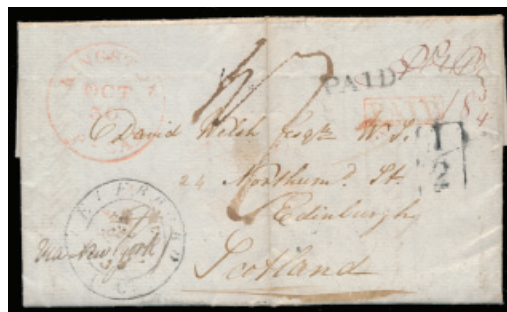 KINGSTON
OCT
PAID
PAID
18 3/4
1/2
David Welsh Esqre W. S.
24 Northumd. St.
Edinburgh
Scotland
PETERBORO
Via New York